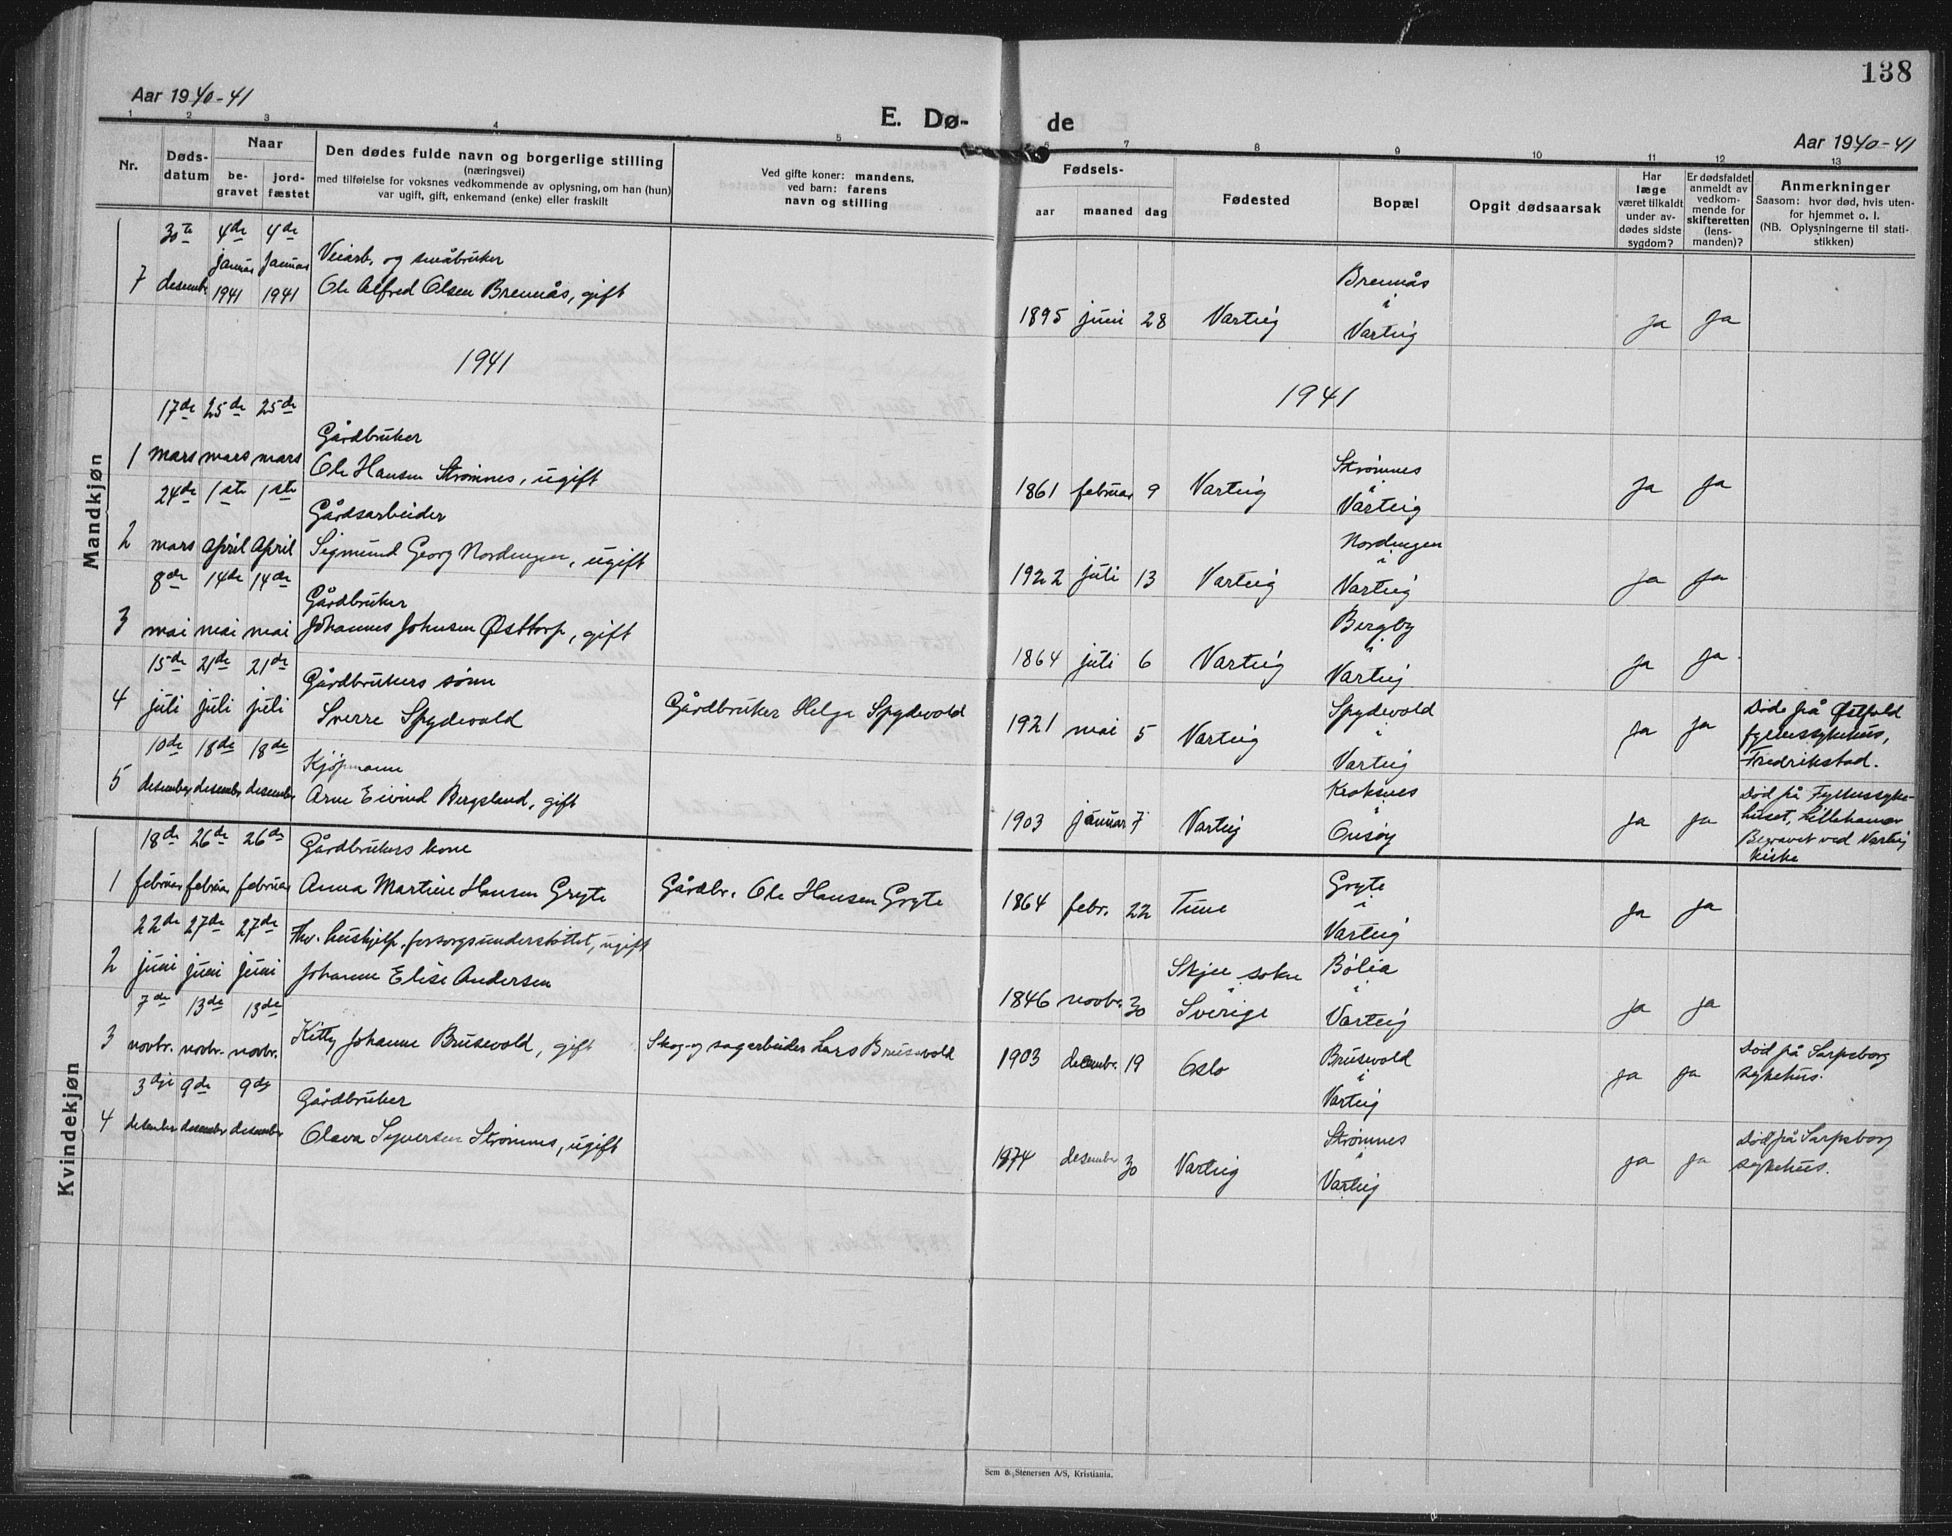 138
Aar 1940-41
E. Dø- de
Aar 1940-41
1 2 3 4 5 6 7 8 9 10 11 12 13
Nr.
Døds-
datum
Naar
be-
gravet
jord-
fæstet
Den dødes fulde navn og borgerlige stilling
(næringsvei)
med tilføielse for voksnes vedkommende av oplysning, om han (hun)
var ugift, gift, enkemand (enke) eller fraskilt
Ved gifte koner: mandens,
ved barn: farens
navn og stilling
Fødsels-
aar maaned dag
Fødested
Bopæl
Opgit dødsaarsak
Har
læge
været tilkaldt
under av-
dødes sidste
sygdom?
Er dødsfaldet
anmeldt av
vedkom-
mende for
skifteretten
(lens-
manden)?
Anmerkninger
Saasom: hvor død, hvis uten-
for hjemmet o. l.
(NB. Oplysningerne til stati-
stikken)
Mandkjøn
30te 4de 4de
januar januar Veiarb. og småbruker
7 desember 1941 1941 Ole Alfred Olsen Brennås, gift
1895 juni 28 Varteig Brennås i Varteig ja ja
1941
1941
17de 25de 25de Gårdbruker
1 mars mars mars Ole Hansen Strømnes, ugift
1861 februar 9 Varteig Strømnes i Varteig ja ja
24de 1ste 1ste Gårdsarbeider
2 mars April April Sigmund Georg Nordengen, ugift
1922 juli 13 Varteig Nordengen i Varteig ja ja
8de 14de 14de Gårdbruker
3 mai mai mai Johannes Johnsen Østtorp, gift
1864 juli 6 Varteig Bergby i Varteig ja ja
15de 21de 21de Gårdbrukers sønn
4 juli juli juli Sverre Spydevold Gårdbruker Helge Spydevold
1921 mai 5 Varteig Spydevold i Varteig ja ja Død på Østfold
fylkessykehus,
Fredrikstad.
10de 18de 18de Kjøpmann
5 desember desember desember Arne Eivind Bergsland, gift
1903 januar 7 Varteig Kroksnes i Onsøy ja ja Død på Fylkessyke-
huset, Lillehamar
Begravet ved Varteig
kirke
Kvindekjøn
18de 26de 26de Gårdbrukers kone
1 februar februar februar Anna Martine Hansen Gryte Gårdbr. Ole Hansen Gryte
1864 febr. 22 Tune Gryte i Varteig ja ja
22de 27de 27de Fhv. hushjelp, forsorgsunderstøttet, ugift
2 juni juni juni Johanne Elise Andersen
1846 novbr. 30 Skjee sokn i Sverige Bølia i Varteig ja ja
7de 13de 13de
3 novbr. novbr. novbr. Kitty Johanne Brusevold, gift Skog- og sagarbeider Lars Brusevold
1903 desembr. 19 Oslo Brusevold i Varteig ja ja Død på Sarpsborg
sykehus.
3dje 9de 9de Gårdbruker
4 desember desember desember Olava Syversen Strømnes, ugift
1874 desember 30 Varteig Strømnes i Varteig ja ja Død på Sarpsborg
sykehus.
Sem & Stenersen A/S, Kristiania.